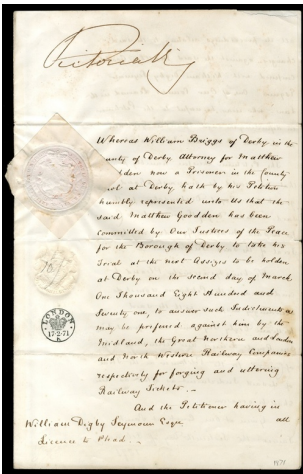 Victoria R
Whereas William Briggs of Derby in the
County of Derby Attorney for Matthew
Goodden now a Prisoner in the County
at Derby hath by his Petition
humbly represented unto Us that the
said Matthew Goodden has been
committed by Our Justices of the Peace
for the Borough of Derby to take his
Trial at the next Assizes to be holden
at Derby on the second day of March
One Thousand Eight Hundred and
Seventy one, to answer such Indictments as
may be prefered against him by the
Midland, the Great Northern and London
and North Western Railway Companies
respectively for forging and uttering
Railway Tickets. -
And the Petitioner having in
William Digby Seymour Esqre all
Licence to Plead. -
10/
LONDON
17·2·71
1871